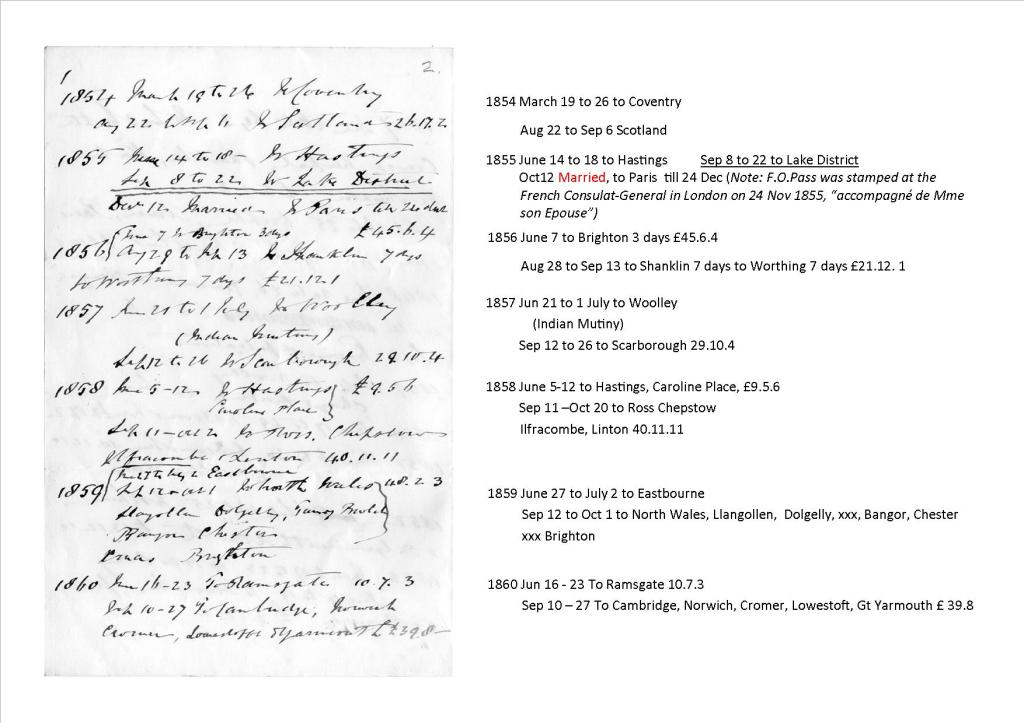 2.
1
1854 March 19 to 26 to Coventry
Aug 22 to Sep 6 to Scotland 26.17.2
1855 June 14 to 18 - to Hastings
Sep 8 to 22 to Lake District
Married to Paris till 24
June 7 to Brighton 3 days £45.6.4
1856 Aug 29 to Sep 13 to Shanklin 7 days
to Worthing 7 days £21.12.1
1857 Jun 21 to 1 July to Woolley
(Indian Mutiny)
Sep 12 to 26 to Scarborough 29.10.4
1858 June 5-12 to Hastings £9.5.6
Caroline Place
Sep 11 - Oct 2 to Ross, Chepstow
Ilfracombe & Linton 40.11.11
to Eastbourne
1859 Sep 12 - Oct 1 to North Wales 48.2.3
Llangollen Dolgelly,
Bangor Chester
Brighton
1860 Jun 16-23 To Ramsgate 10.7.3
Sep 10-27 To Cambridge, Norwich
Cromer, Lowestoft & Yarmouth £39.8-
1854 March 19 to 26 to Coventry
Aug 22 to Sep 6 Scotland
1855 June 14 to 18 to Hastings Sep 8 to 22 to Lake District
Oct12 Married, to Paris till 24 Dec (Note: F.O.Pass was stamped at the
French Consulat-General in London on 24 Nov 1855, “accompagné de Mme
son Epouse”)
1856 June 7 to Brighton 3 days £45.6.4
Aug 28 to Sep 13 to Shanklin 7 days to Worthing 7 days £21.12. 1
1857 Jun 21 to 1 July to Woolley
(Indian Mutiny)
Sep 12 to 26 to Scarborough 29.10.4
1858 June 5-12 to Hastings, Caroline Place, £9.5.6
Sep 11 –Oct 20 to Ross Chepstow
Ilfracombe, Linton 40.11.11
1859 June 27 to July 2 to Eastbourne
Sep 12 to Oct 1 to North Wales, Llangollen, Dolgelly, xxx, Bangor, Chester
xxx Brighton
1860 Jun 16 - 23 To Ramsgate 10.7.3
Sep 10 – 27 To Cambridge, Norwich, Cromer, Lowestoft, Gt Yarmouth £ 39.8